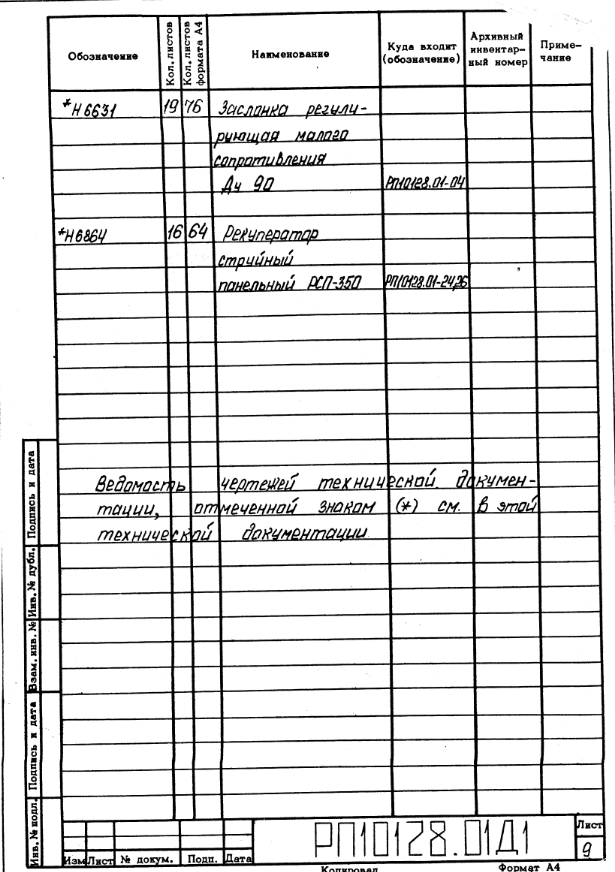 Обозначение Кол. листов Кол. листов формата А4 Наименование Куда входит (обозначение) Архивный инвентарный номер Примечание
*Н6631 19 76 Заслонка регули-
рующая малого
сопротивления
Ду 90 РП10128.01-04
*Н6864 16 64 Рекуператор
струйный
панельный РСП-350 РП10128.01-24,26
Ведомость чертежей технической докумен-
тации, отмеченной знаком (*) см. в этой
технической документации
Подпись и дата
Инв. № дубл.
Взам. инв. №
Подпись и дата
Инв. № подл.
Изм Лист № докум. Подп. Дата
РП10128.01Д1
Лист
9
Копировал Формат А4